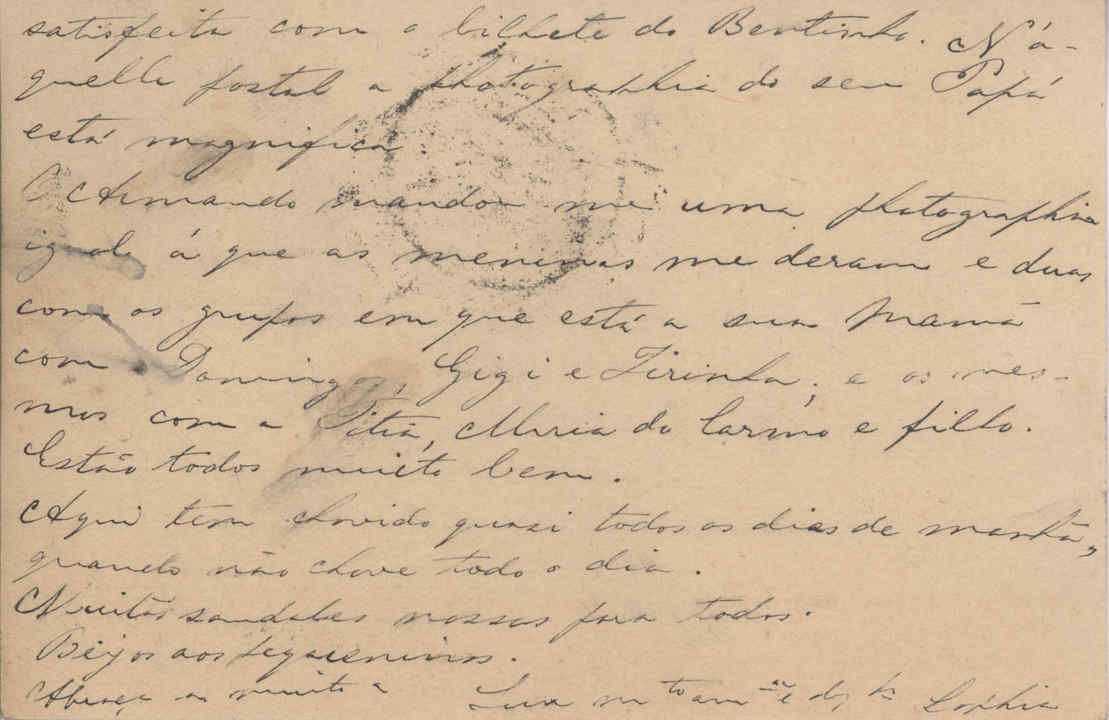 satisfeita com o bilhete do Bentinho. N'a-
quelle postal a photographia do seu Papá
está magnifica.
O Armando mandou me uma photographia
igual á que as meninas me deram e duas
com os grupos em que está a sua Mamã
com Domingos, Gigi e Zirinha; e os mes-
mos com a Titia, Maria do Carmo e filho.
Estão todos muito bem.
Aqui tem chovido quasi todos os dias de manhã,
quando não chove todo o dia.
Muitas saudades nossas para todos.
Beijos aos pequeninos.
Abraça-as muito a
Sua mto amª e Sophia